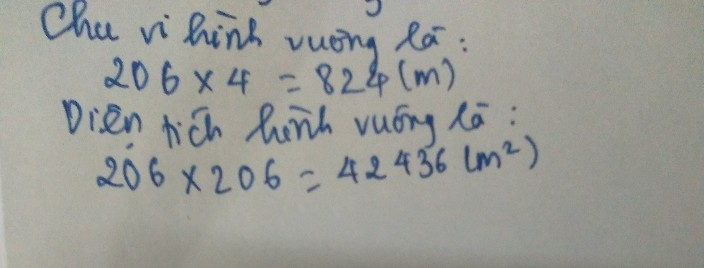 Chu vi hình vuông là:
206 x 4 = 824 (m)
Diện tích hình vuông là:
206 x 206 = 42436 (m²)